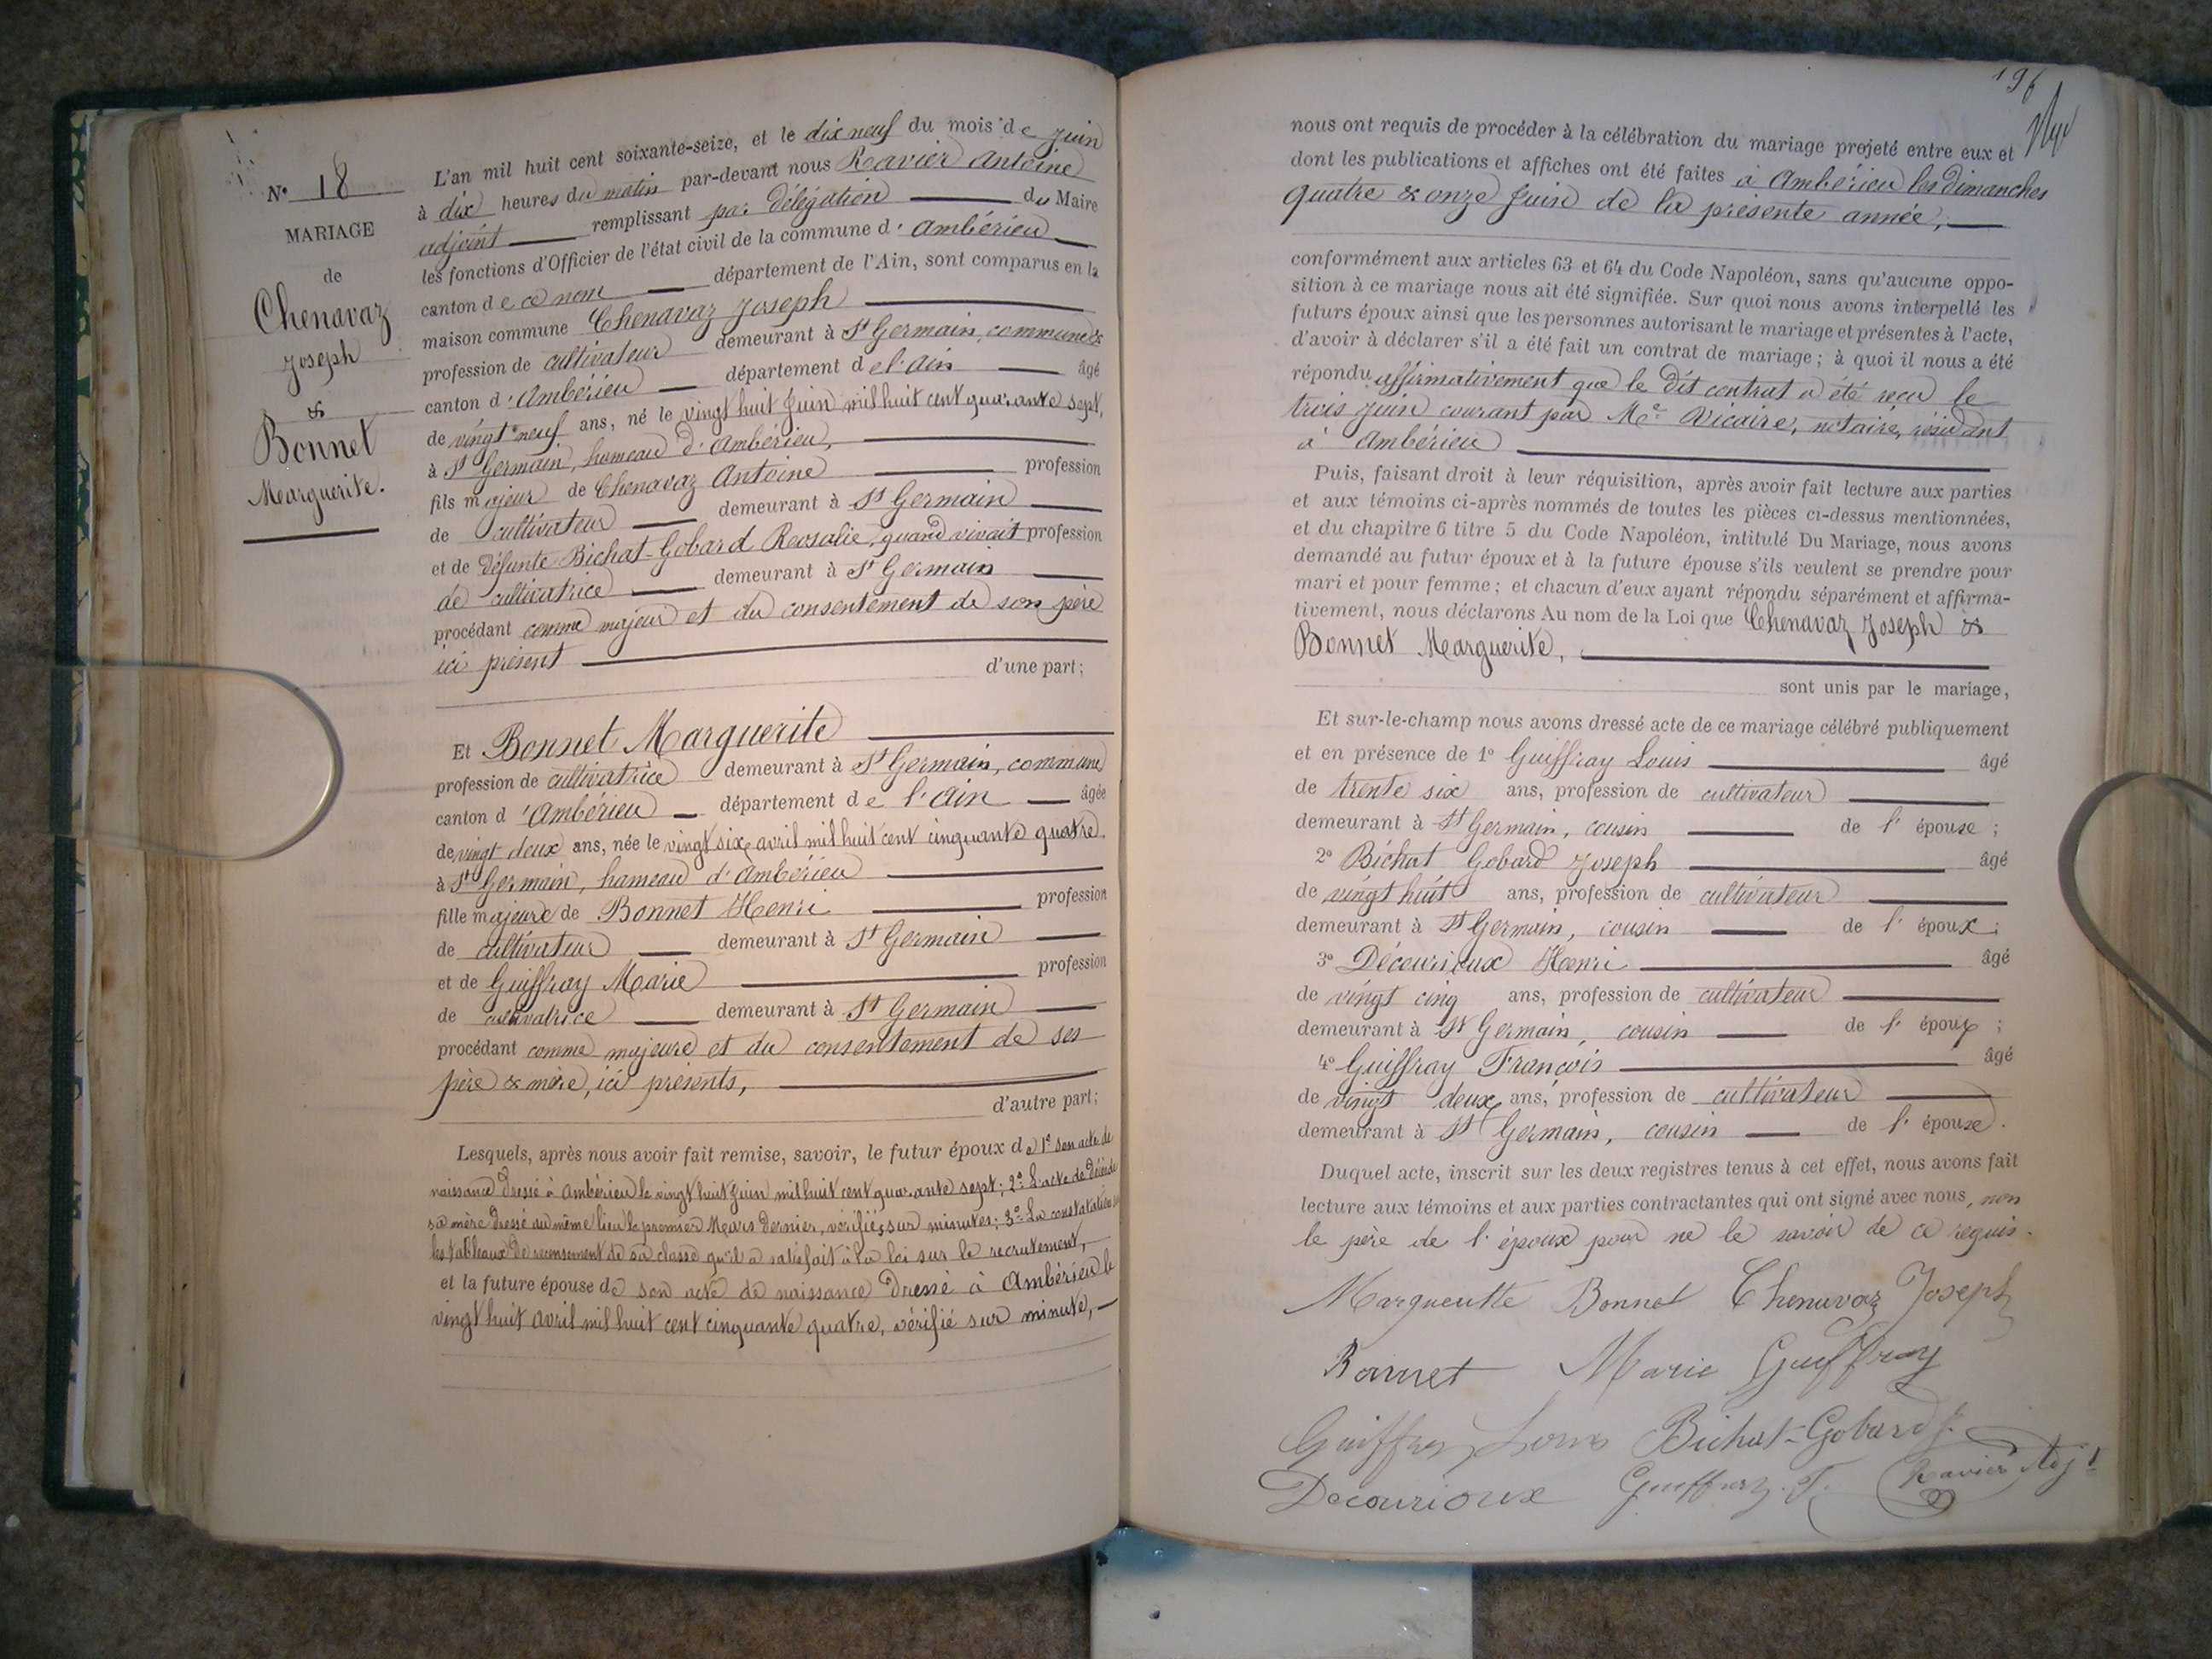 N° 18
MARIAGE
de
Chenavaz
Joseph
&
Bonnet
Marguerite.
L'an mil huit cent soixante-seize, et le dix neuf du mois de juin
à dix heures du matin par-devant nous Ravier Antoine
adjoint remplissant par délégation du Maire
les fonctions d'Officier de l'état civil de la commune d'Ambérieu
canton de ce nom département de l'Ain, sont comparus en la
maison commune Chenavaz Joseph
profession de cultivateur demeurant à St Germain, commune &
canton d'Ambérieu département de l'Ain âgé
de vingt neuf ans, né le vingt huit Juin mil huit cent quarante sept,
à St Germain, hameau d'Ambérieu,
fils majeur de Chenavaz Antoine profession
de cultivateur demeurant à St Germain
et de défunte Bichat-Gobard Rosalie, quand vivait profession
de cultivatrice demeurant à St Germain
procédant comme majeur et du consentement de son père
ici présent
d'une part;
Et Bonnet Marguerite
profession de cultivatrice demeurant à St Germain, commune
canton d'Ambérieu département de l'Ain âgée
de vingt deux ans, née le vingt six avril mil huit cent cinquante quatre.
à St Germain, hameau d'Ambérieu
fille majeure de Bonnet Henri profession
de cultivateur demeurant à St Germain
et de Guiffray Marie profession
de cultivatrice demeurant à St Germain
procédant comme majeure et du consentement de ses
père & mère, ici présents,
d'autre part;
Lesquels, après nous avoir fait remise, savoir, le futur époux de 1° son acte de
naissance dressé à Ambérieu le vingt huit Juin mil huit cent quarante sept; 2° L'acte de décès de
sa mère dressé au même lieu le premier Mars dernier, vérifiés sur minutes; 3° La constatation
les tableaux de recensement de sa classe qu'il a satisfait à la loi sur le recrutement,
et la future épouse de son acte de naissance dressé à Ambérieu le
vingt huit avril mil huit cent cinquante quatre, vérifié sur minute,
196
nous ont requis de procéder à la célébration du mariage projeté entre eux et
dont les publications et affiches ont été faites à Ambérieu les dimanches
quatre & onze Juin de la présente année,
conformément aux articles 63 et 64 du Code Napoléon, sans qu'aucune oppo-
sition à ce mariage nous ait été signifiée. Sur quoi nous avons interpellé les
futurs époux ainsi que les personnes autorisant le mariage et présentes à l'acte,
d'avoir à déclarer s'il a été fait un contrat de mariage; à quoi il nous a été
répondu affirmativement que le dit contrat a été reçu le
trois juin courant par Me Vicaire, notaire, résidant
à Ambérieu
Puis, faisant droit à leur réquisition, après avoir fait lecture aux parties
et aux témoins ci-après nommés de toutes les pièces ci-dessus mentionnées,
et du chapitre 6 titre 5 du Code Napoléon, intitulé Du Mariage, nous avons
demandé au futur époux et à la future épouse s'ils veulent se prendre pour
mari et pour femme; et chacun d'eux ayant répondu séparément et affirma-
tivement, nous déclarons Au nom de la Loi que Chenavaz Joseph &
Bonnet Marguerite,
sont unis par le mariage,
Et sur-le-champ nous avons dressé acte de ce mariage célébré publiquement
et en présence de 1° Guiffray Louis âgé
de trente six ans, profession de cultivateur
demeurant à St Germain, cousin de l'épouse;
2° Bichat Gobard Joseph âgé
de vingt huit ans, profession de cultivateur
demeurant à St Germain, cousin de l'époux;
3° Décourioux Henri âgé
de vingt cinq ans, profession de cultivateur
demeurant à St Germain, cousin de l'époux;
4° Guiffray François âgé
de vingt deux ans, profession de cultivateur
demeurant à St Germain, cousin de l'épouse.
Duquel acte, inscrit sur les deux registres tenus à cet effet, nous avons fait
lecture aux témoins et aux parties contractantes qui ont signé avec nous, non
le père de l'époux pour ne le savoir de ce requis.
Margueritte Bonnet Chenavaz Joseph
Bonnet Marie Guiffray
Guiffray Louis Bichat-Gobard J.
Decourioux Guiffray. F. Ravier Adjt